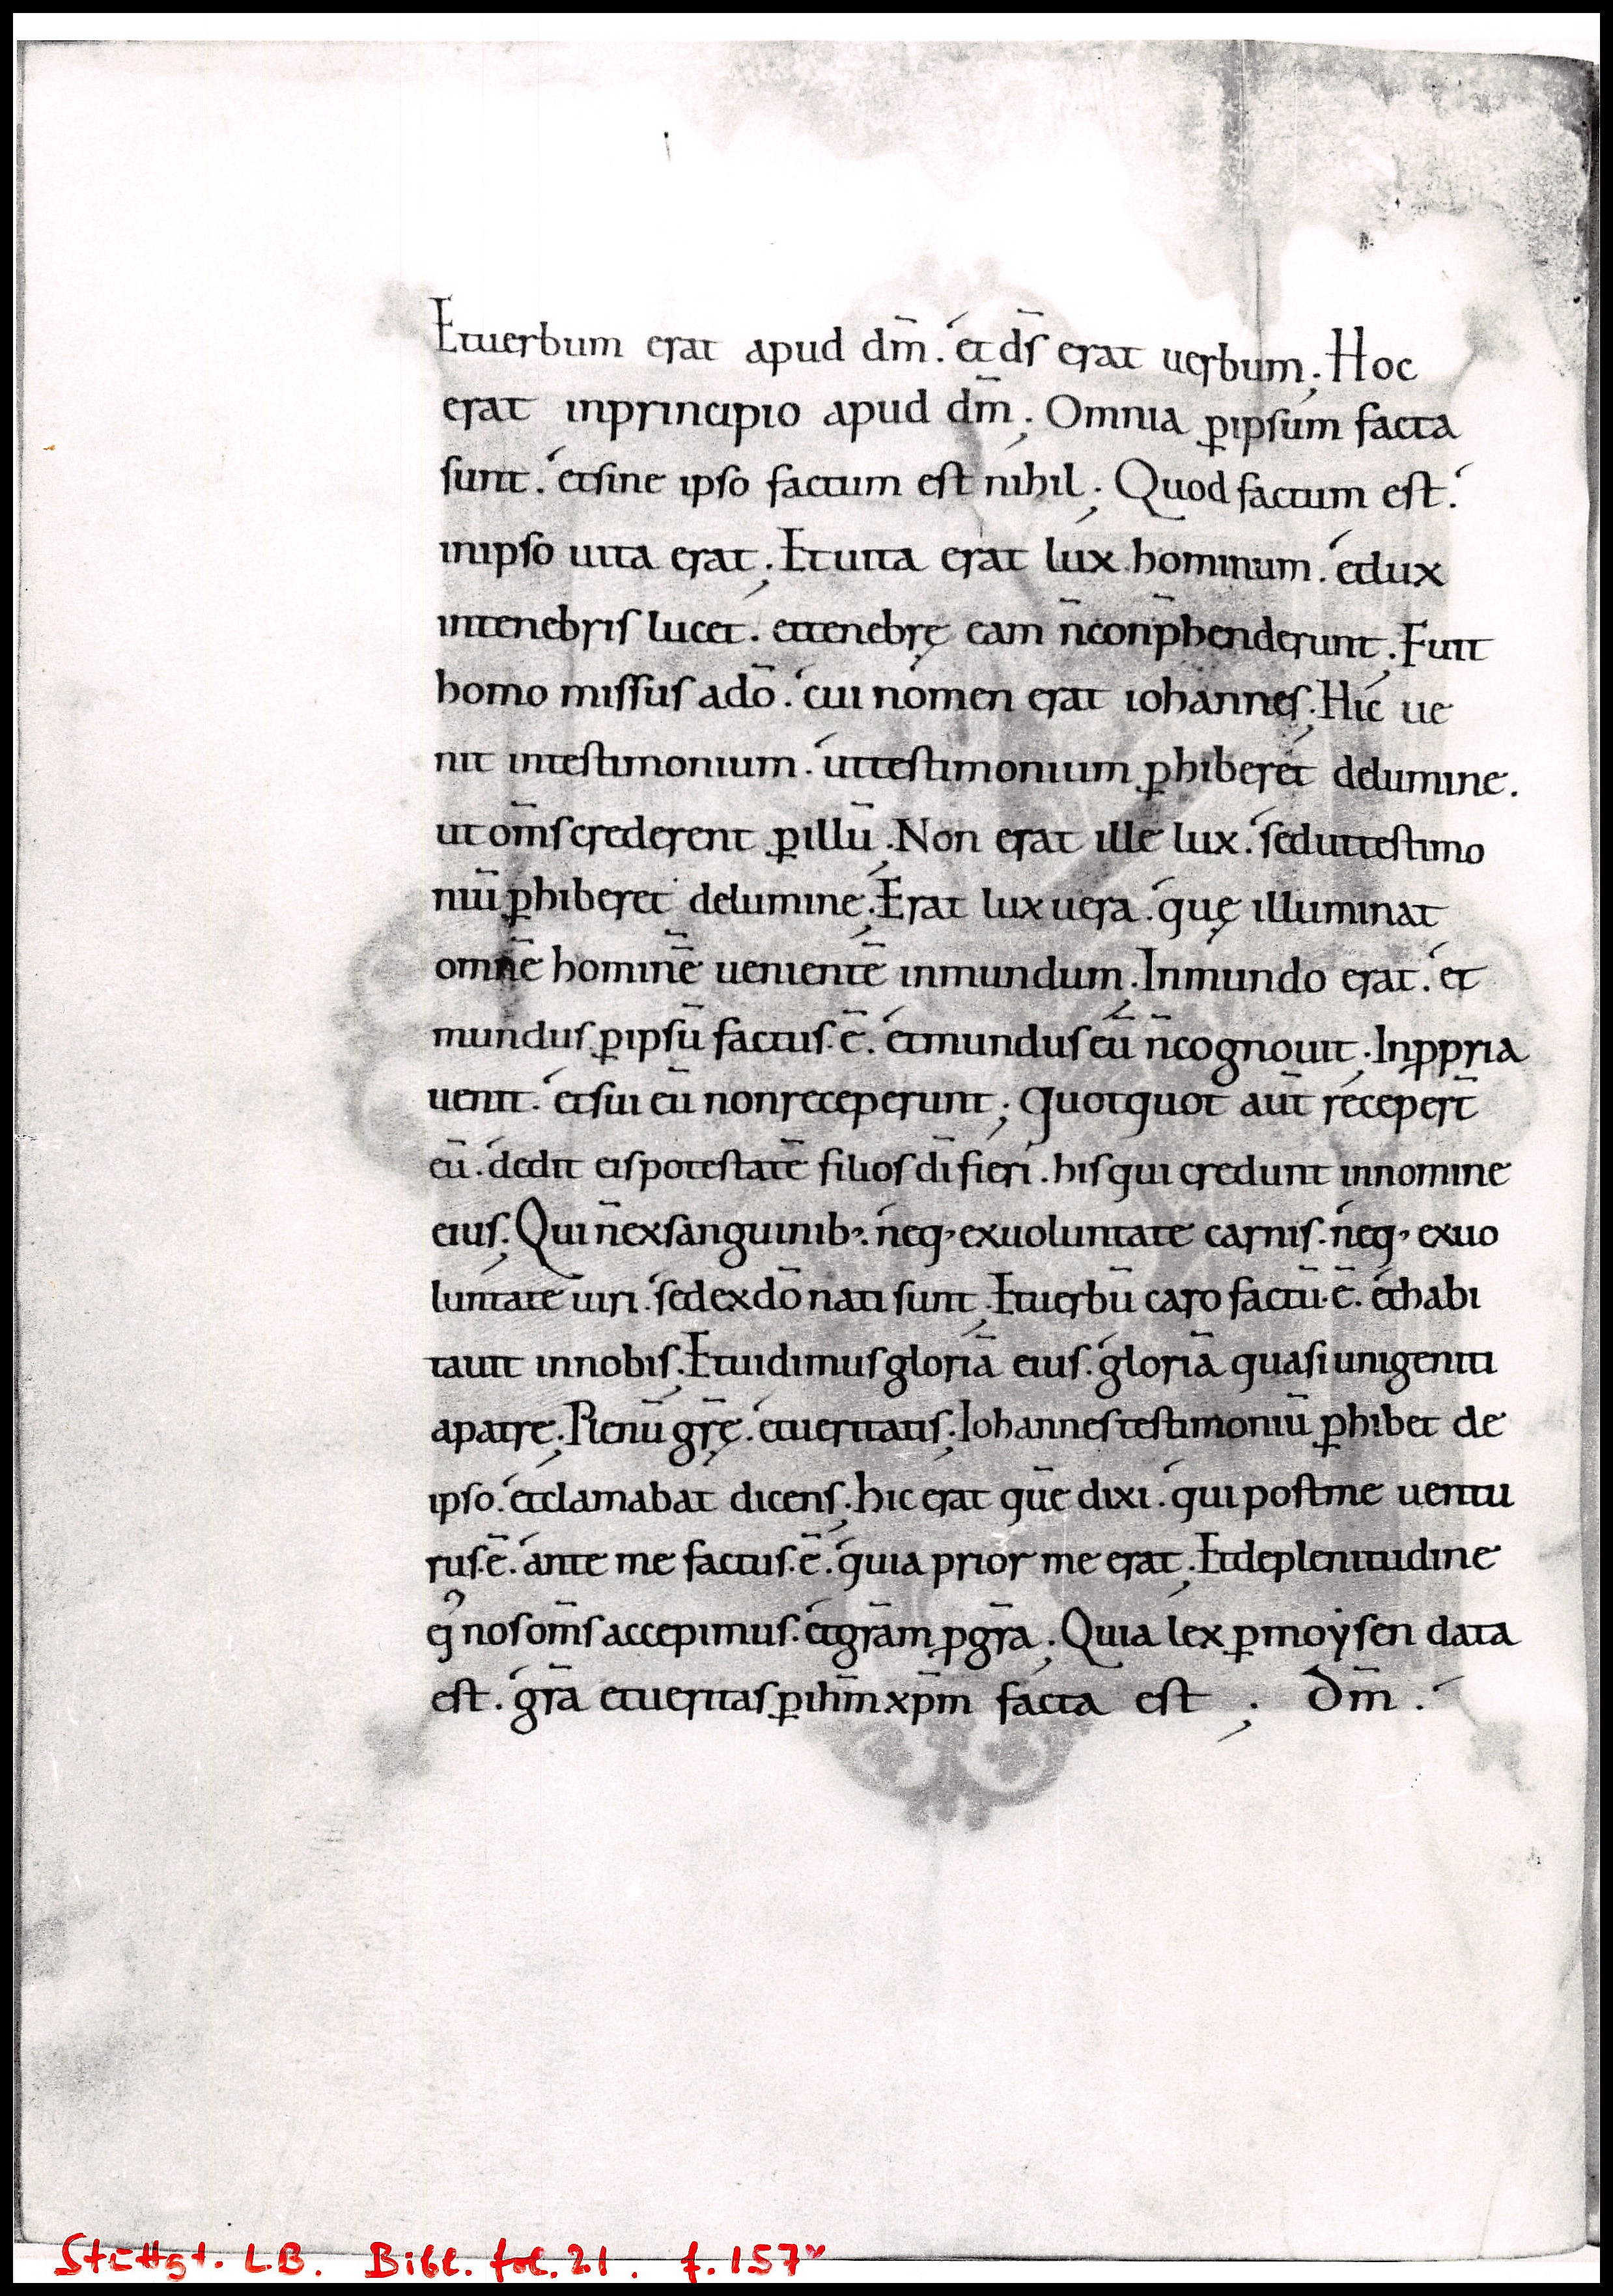 Et uerbum erat apud dm̄. et ds̄ erat uerbum; Hoc
erat inprincipio apud dm̄; Omnia ꝑipsum facta
sunt. et sine ipso factum est nihil; Quod factum est.
inipso uita erat; Et uita erat lux hominum. et lux
intenebris lucet. et tenebrę eam n̄ conp̄henderunt; Fuit
homo missus adō. cui nomen erat iohannes; Hic ue
nit intestimonium. ut testimonium ꝑhiberet delumine.
ut om̄s crederent ꝑillū; Non erat ille lux. sed ut testimo
niū ꝑhiberet delumine; Erat lux uera. quę illuminat
omnē hominē uenientē inmundum; Inmundo erat. et
mundus ꝑipsū factus.ē. et mundus eū n̄ cognouit; Inꝓpria
uenit. et sui eū non receperunt; Quotquot aūt recepert̄
eū. dedit eis potestatē filios dī fieri. his qui credunt innomine
eius; Qui n̄ exsanguinib; neq; exuoluntate carnis. neq; exuo
luntate uiri. sed exdō nati sunt; Et uerbū caro factū.ē. et habi
tauit innobis; Et uidimus gloriā eius. gloriā quasi unigeniti
apatre; Plenū gr̄ę. et ueritatis; Iohannes testimoniū ꝑhibet de
ipso. et clamabat dicens; hic erat quē dixi. qui post me uentu
rus.ē. ante me factus.ē. quia prior me erat; Et deplenitudine
ej᾽ nos om̄s accepimus. et gr̄am ꝓ gr̄a; Quia lex ꝑmoẏsen data
est. gr̄a et ueritas ꝑ ihm̄ xp̄m facta est; Dm̄.
Stuttgt. L.B. Bibl. fol. 21. f. 157v